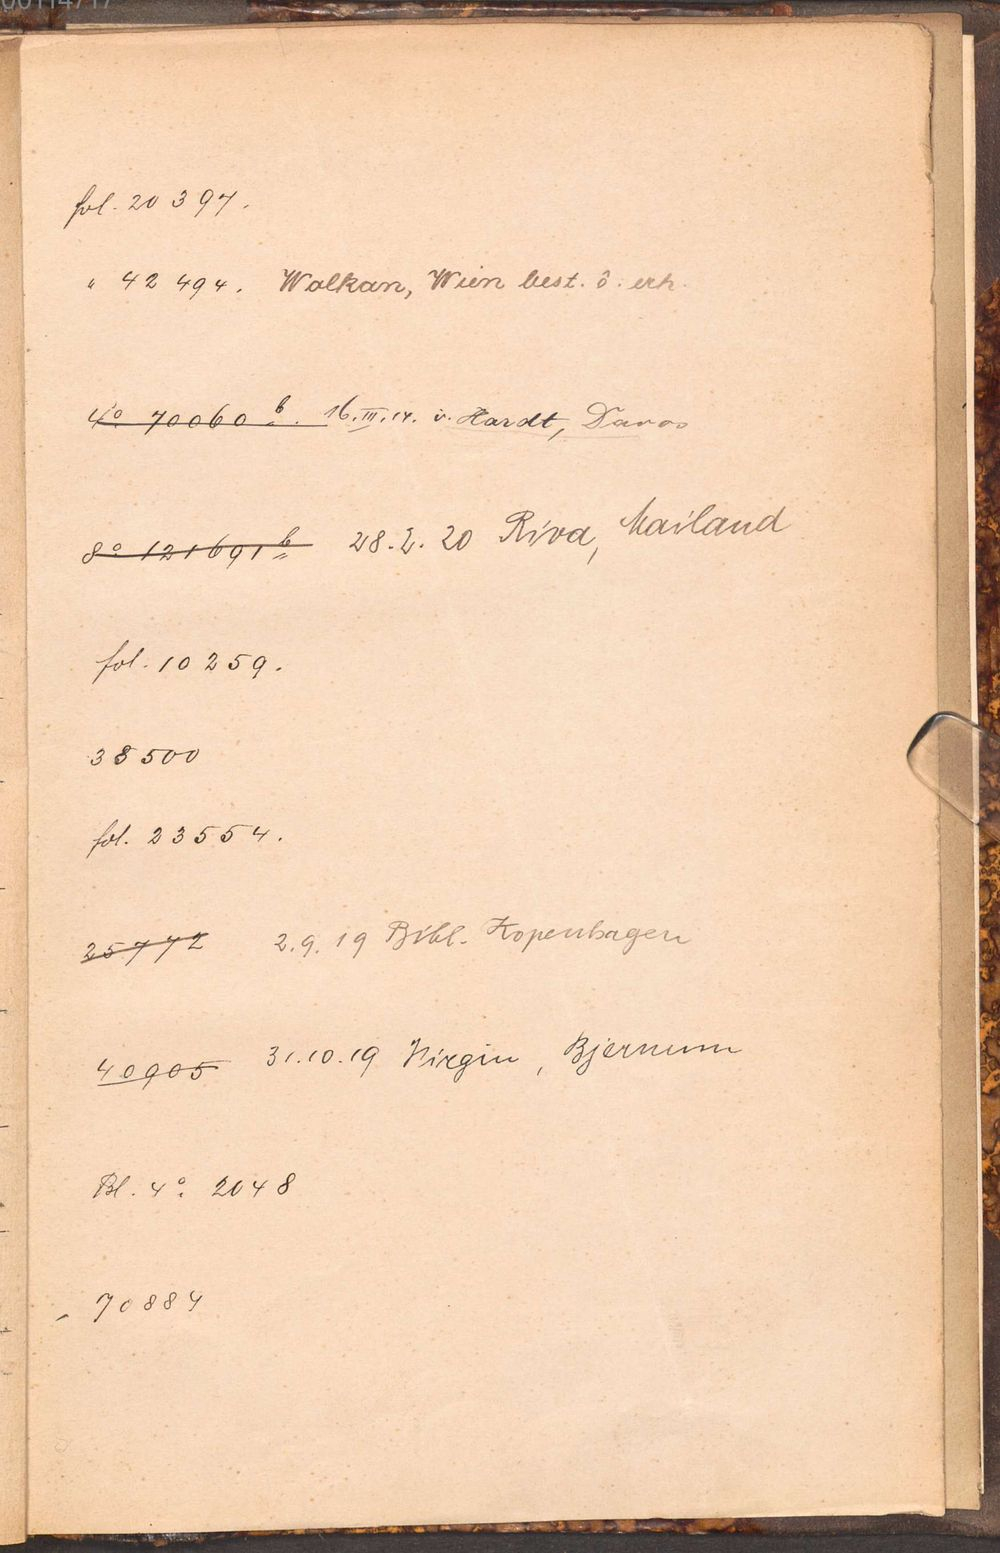 fol. 20 397.
" 42 494. Wolkan, Wien best. ö. erh.
4° 70060 b. 16.III.14. v. Hardt, Davos
8° 121691 b 28.2.20 Riva, Mailand
fol. 10 259.
38500
fol. 23554.
25772 2.9.19 Bibl. Kopenhagen
40905 31.10.19 Virgin, Bjernum
Bl. 4° 2048
70884